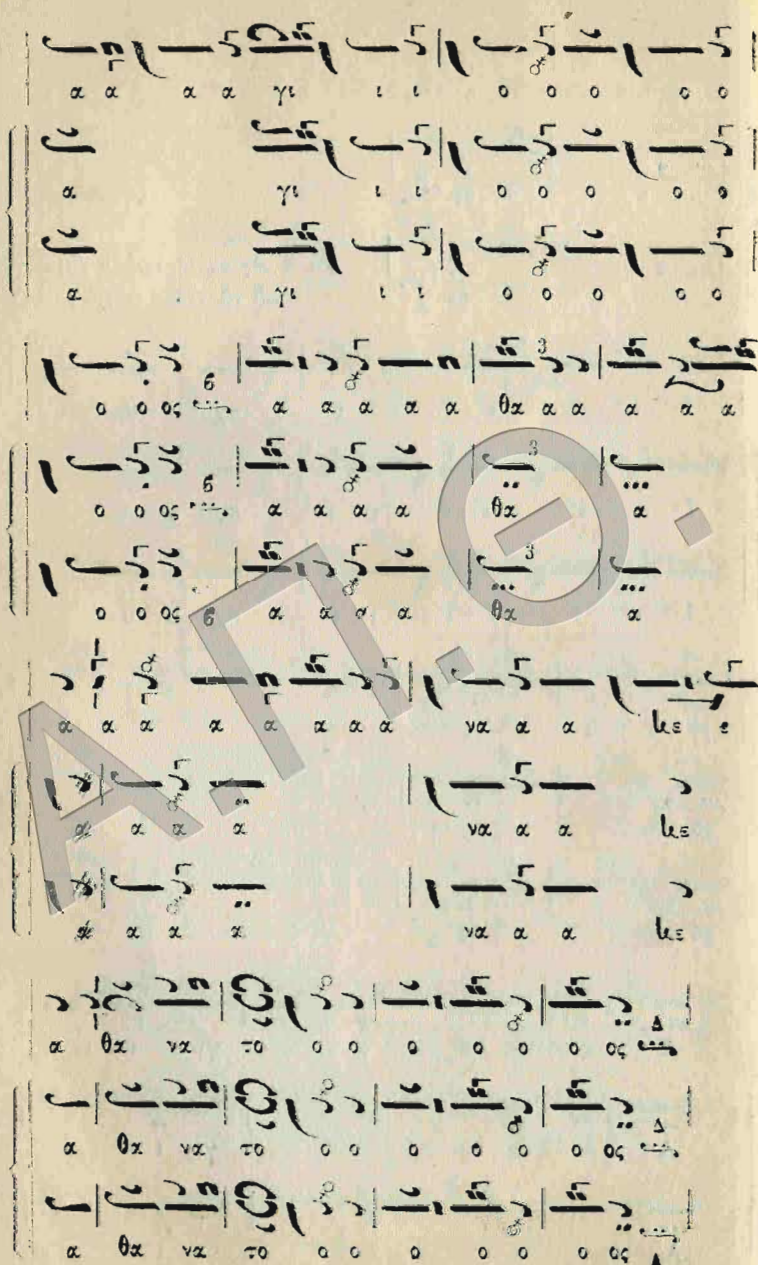 α α α α γι ι ι ο ο ο ο ο
α γι ι ι ο ο ο ο ο
α γι ι ι ο ο ο ο ο
ο ο ος α α α α α θα α α α α α
ο ο ος α α α α θα α
ο ο ος α α α α θα α
α α α α α α α α να α α
α α α α να α α
α α α α να α α
α θα να το ο ο ο ο ο ο ος
α θα να το ο ο ο ο ο ο ος
α θα να το ο ο ο ο ο ο ος
Α.Π.Θ.